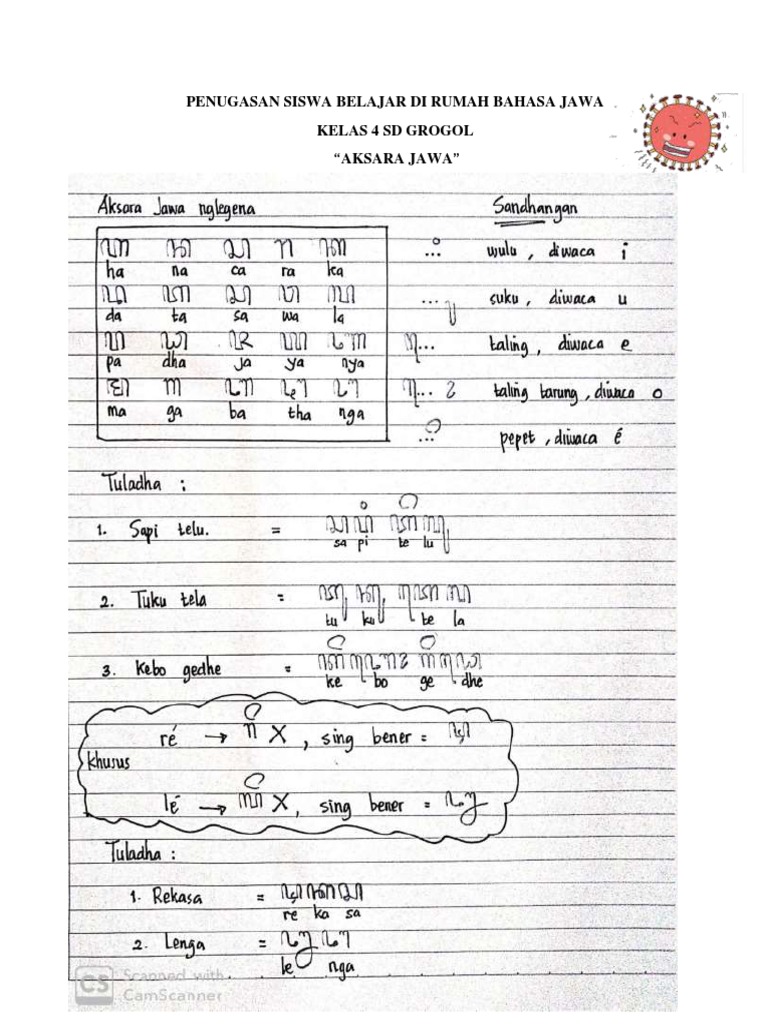 PENUGASAN SISWA BELAJAR DI RUMAH BAHASA JAWA
KELAS 4 SD GROGOL
“AKSARA JAWA”
Aksara Jawa nglegena
Sandhangan
ꦲ ꦤ ꦕ ꦫ ꦏ
ha na ca ra ka
ꦢ ꦠ ꦱ ꦮ ꦭ
da ta sa wa la
ꦥ ꦝ ꦗ ꦪ ꦚ
pa dha ja ya nya
ꦩ ꦒ ꦧ ꦛ ꦔ
ma ga ba tha nga
...ꦶ wulu, diwaca i
...ꦸ suku, diwaca u
ꦺ... taling, diwaca e
ꦺ...ꦴ taling tarung, diwaca o
...ꦼ pepet, diwaca é
Tuladha :
1. Sapi telu. = ꦱꦥꦶ ꦠꦼꦭꦸ
sa pi te lu
2. Tuku tela = ꦠꦸꦏꦸ ꦠꦺꦭ
tu ku te la
3. Kebo gedhe = ꦏꦼꦧꦺꦴ ꦒꦼꦝꦺ
ke bo ge dhe
ré → ꦫꦼ X, sing bener = ꦉ
Khusus
lé → ꦭꦼ X, sing bener = ꦊ
Tuladha :
1. Rekasa = ꦉꦏꦱ
re ka sa
2. Lenga = ꦊꦔ
le nga
CS Scanned with
CamScanner